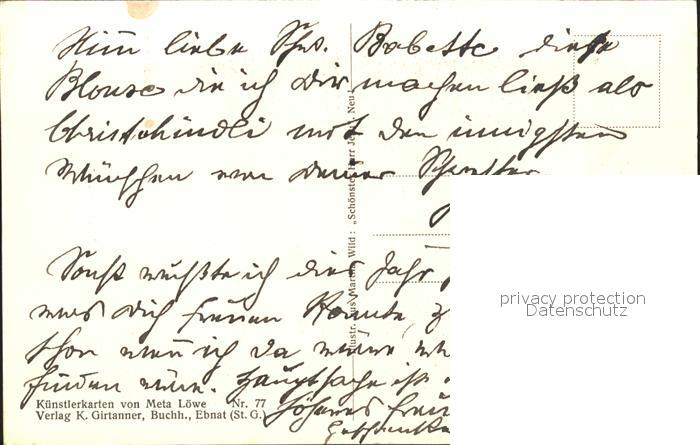 Nimm liebe Schw. Babette diese
Blouse die ich Dir machen ließ als
Christchindli mit den innigsten
Wünschen von Deiner Schwester
Sonst wüßte ich dies Jahr
was Dich freuen könnte
schon wenn ich da wäre
finden würde. Hauptsache ist
schönes
Illustr. aus Martha Wild: „Schönster Herr Je
Neu
Künstlerkarten von Meta Löwe Nr. 77
Verlag K. Girtanner, Buchh., Ebnat (St. G.)
privacy protection
Datenschutz